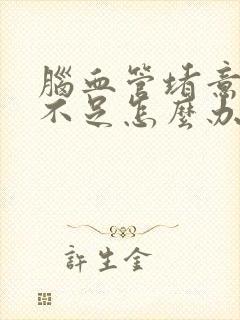 腦血管堵意
不足怎麼办
許生金